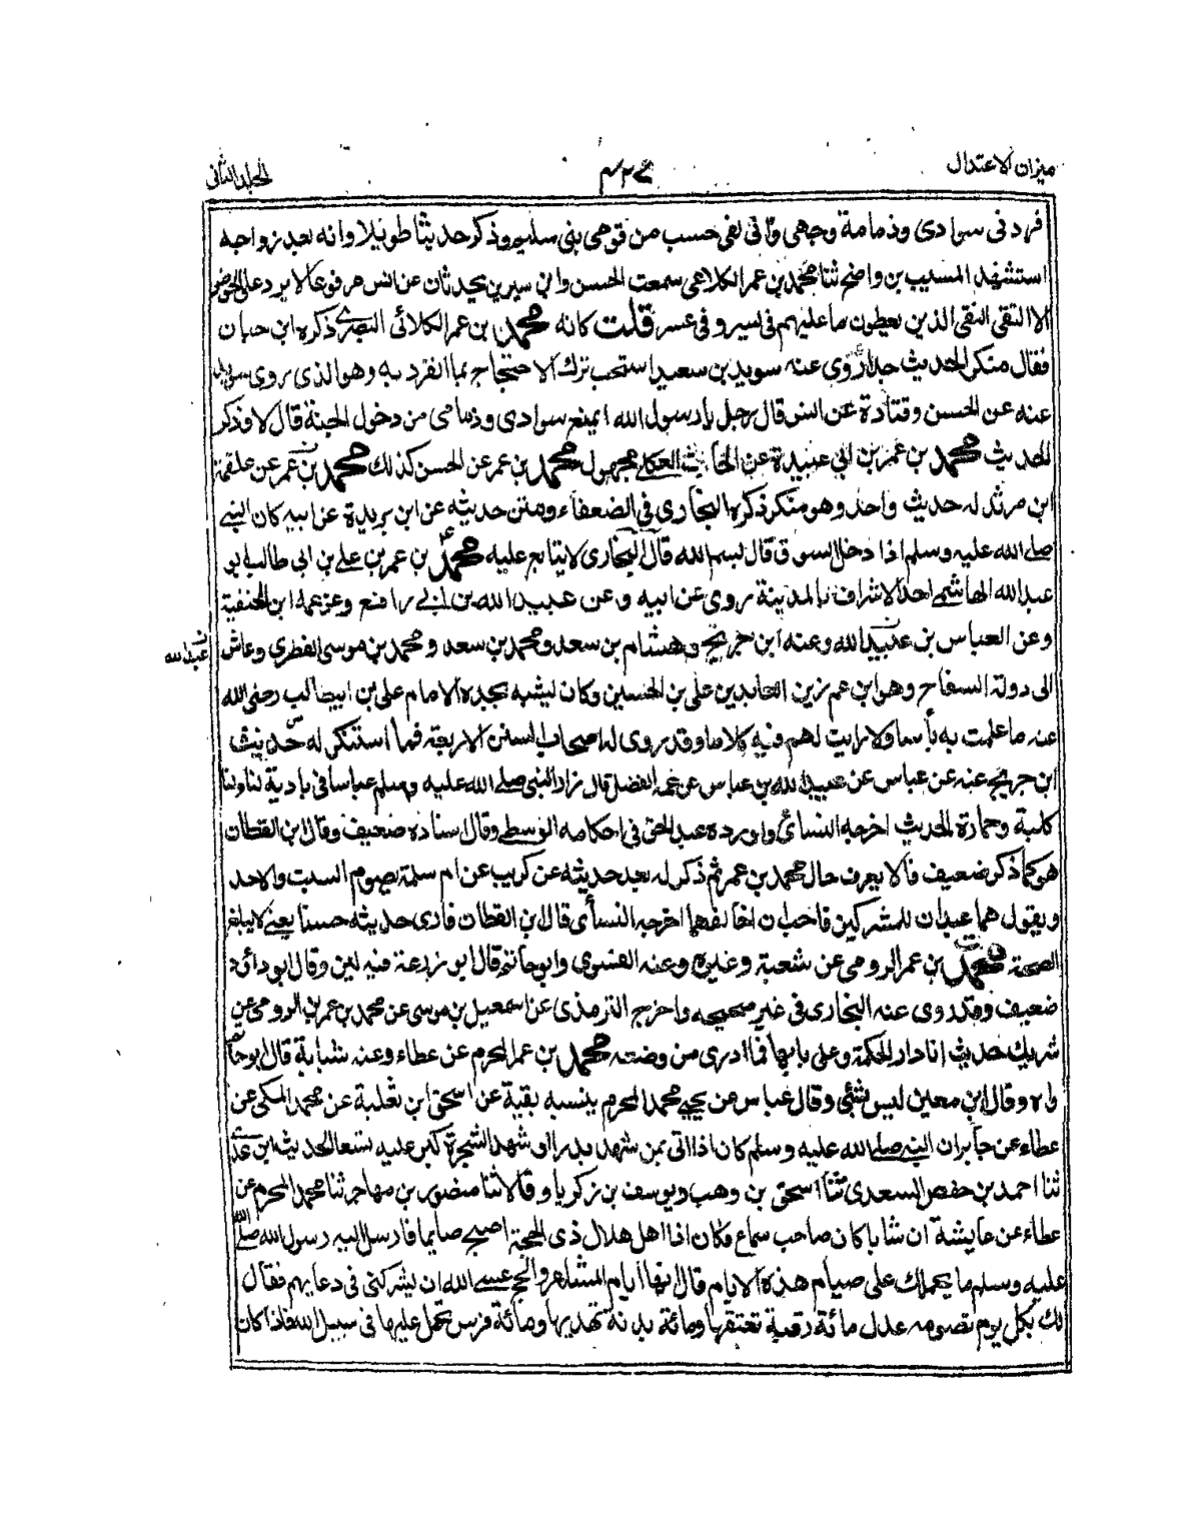 ميزان الاعتدال
٤٢٦
الجلد الثانى
فردنى سوادى وذمامة وجهى وانى لفى حسب من قومى بنى سليم وذكر حديثا طويلا وانه بعد زواجه
استشهد المسيب بن واضح ثنا محمد بن عمر الكلاعى سمعت الحسن وابن سيرين يحدثان عن انس مرفوعا لا يرد على الحوض
الا التقى النقى الذين يعطون ما عليهم فى يسر وفى عسر قلت كانه محمد بن عمر الكلائى البصرى ذكره ابن حبان
فقال منكر الحديث جدا روى عنه سويد بن سعيد استحب ترك الاحتجاج بما انفرد به وهو الذى روى سويد
عنه عن الحسن وقتادة عن انس قال رجل يا رسول الله ايمنع سوادى وذمامى من دخول الجنة قال لا وذكر
الحديث محمد بن عمر بن ابى عبيدة عن الحارث العكلى مجهول محمد بن عمر عن الحسن كذلك محمد بن عمر عن علقمة
ابن مرثد له حديث واحد وهو منكر ذكره البخارى فى الضعفاء ومتن حديثه عن ابن بريدة عن ابيه كان النبى
صلى الله عليه وسلم اذا دخل السوق قال بسم الله قال البخارى لا يتابع عليه محمد بن عمر بن على بن ابى طالب ابو
عبد الله الهاشمى احد الاشراف بالمدينة روى عن ابيه وعن عبيد الله بن ابى رافع وعن عمه ابن الحنفية
وعن العباس بن عبيد الله وعنه ابن جريج وهشام بن سعد ومحمد بن سعد ومحمد بن موسى الفطرى وعاش
عبد الله
الى دولة السفاح وهو ابن عم زين العابدين على بن الحسين وكان يشبه بجده الامام على بن ابيطالب رضى الله
عنه ما علمت به بأسا ولا رايت لهم فيه كلاما وقد روى له اصحاب السنن الاربعة فما استنكر له حديث
ابن جريج عنه عن عباس عن عبيد الله بن عباس عن عمه الفضل قال زار النبى صلى الله عليه وسلم عباسا فى بادية لنا ولنا
كلبة وحمارة الحديث اخرجه النسائى واورده عبد الحق فى احكامه الوسطى وقال اسناده ضعيف وقال ابن القطان
هو كما ذكر ضعيف فلا يعرف حال محمد بن عمر ثم ذكر له بعد حديثه عن كريب عن ام سلمة يصوم السبت والاحد
ويقول هما عيدان للمشركين فاحب ان اخالفهما اخرجه النسأى قال ابن القطان فارى حديثه حسنا يعنى لا يبلغ
الصحة محمد بن عمر الرومى عن شعبة وغيره وعنه الفسوى وابو حاتم قال ابو زرعة فيه لين وقال ابو داؤد
ضعيف وقد روى عنه البخارى فى غير صحيحه واخرج الترمذى عن اسمعيل بن موسى عن محمد بن عمر بن الرومى عن
شريك حديث انا دار الحكمة وعلى بابها فما ادرى من وضعه محمد بن عمر المحرم عن عطاء وعنه شبابة قال ابو حاتم
واه وقال ابن معين ليس بشئى وقال عباس عن يحيى محمد المحرم ينسبه بقية عن اسحق ابن ثعلبة عن محمد المكى عن
عطاء عن جابر ان النبى صلى الله عليه وسلم كان اذا اتى بمن شهد بدرا او شهد الشجرة كبر عليه تسعا الحديث ابن عدى
ثنا احمد بن حفص السعدى ثنا اسحق بن وهب ويوسف بن زكريا وقالا ثنا منصور بن مهاجر ثنا محمد المحرم عن
عطاء عن عايشة ان شابا كان صاحب سماع فكان اذا اهل هلال ذى الحجة اصبح صايما فارسل اليه رسول الله صلى الله
عليه وسلم ما يحملك على صيام هذه الايام قال انها ايام المشاعر والحج عسى الله ان يشركنى فى دعايهم فقال
لك بكل يوم تصومه عدل مائة رقبة تعتقها ومائة بدنة تهديها ومائة فرس تحمل عليها فى سبيل الله فاذا كان